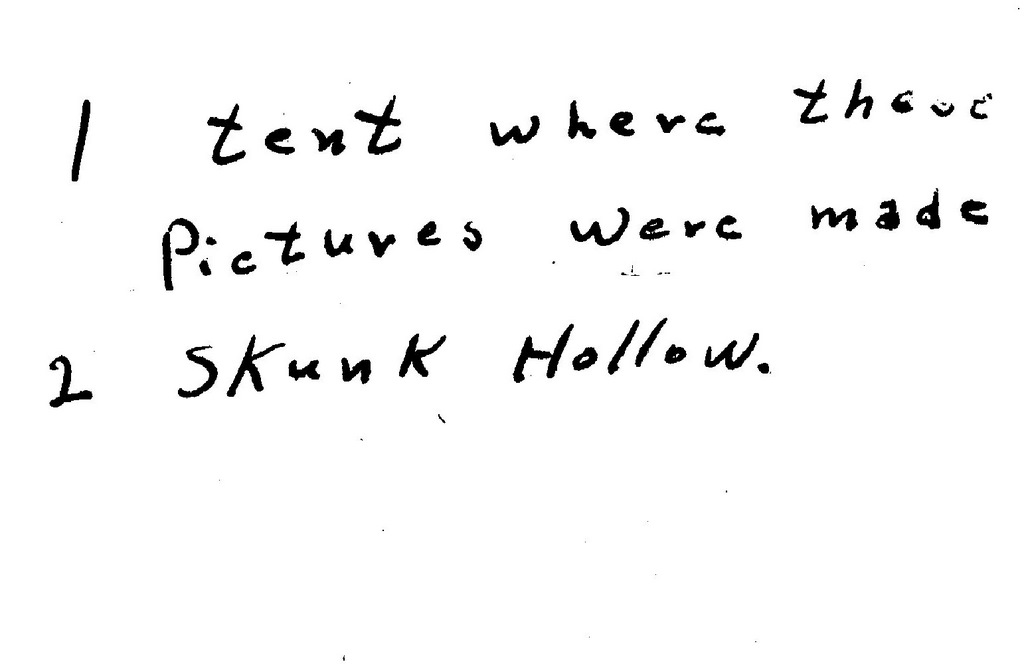 1 tent where these
Pictures were made
2 Skunk Hollow.